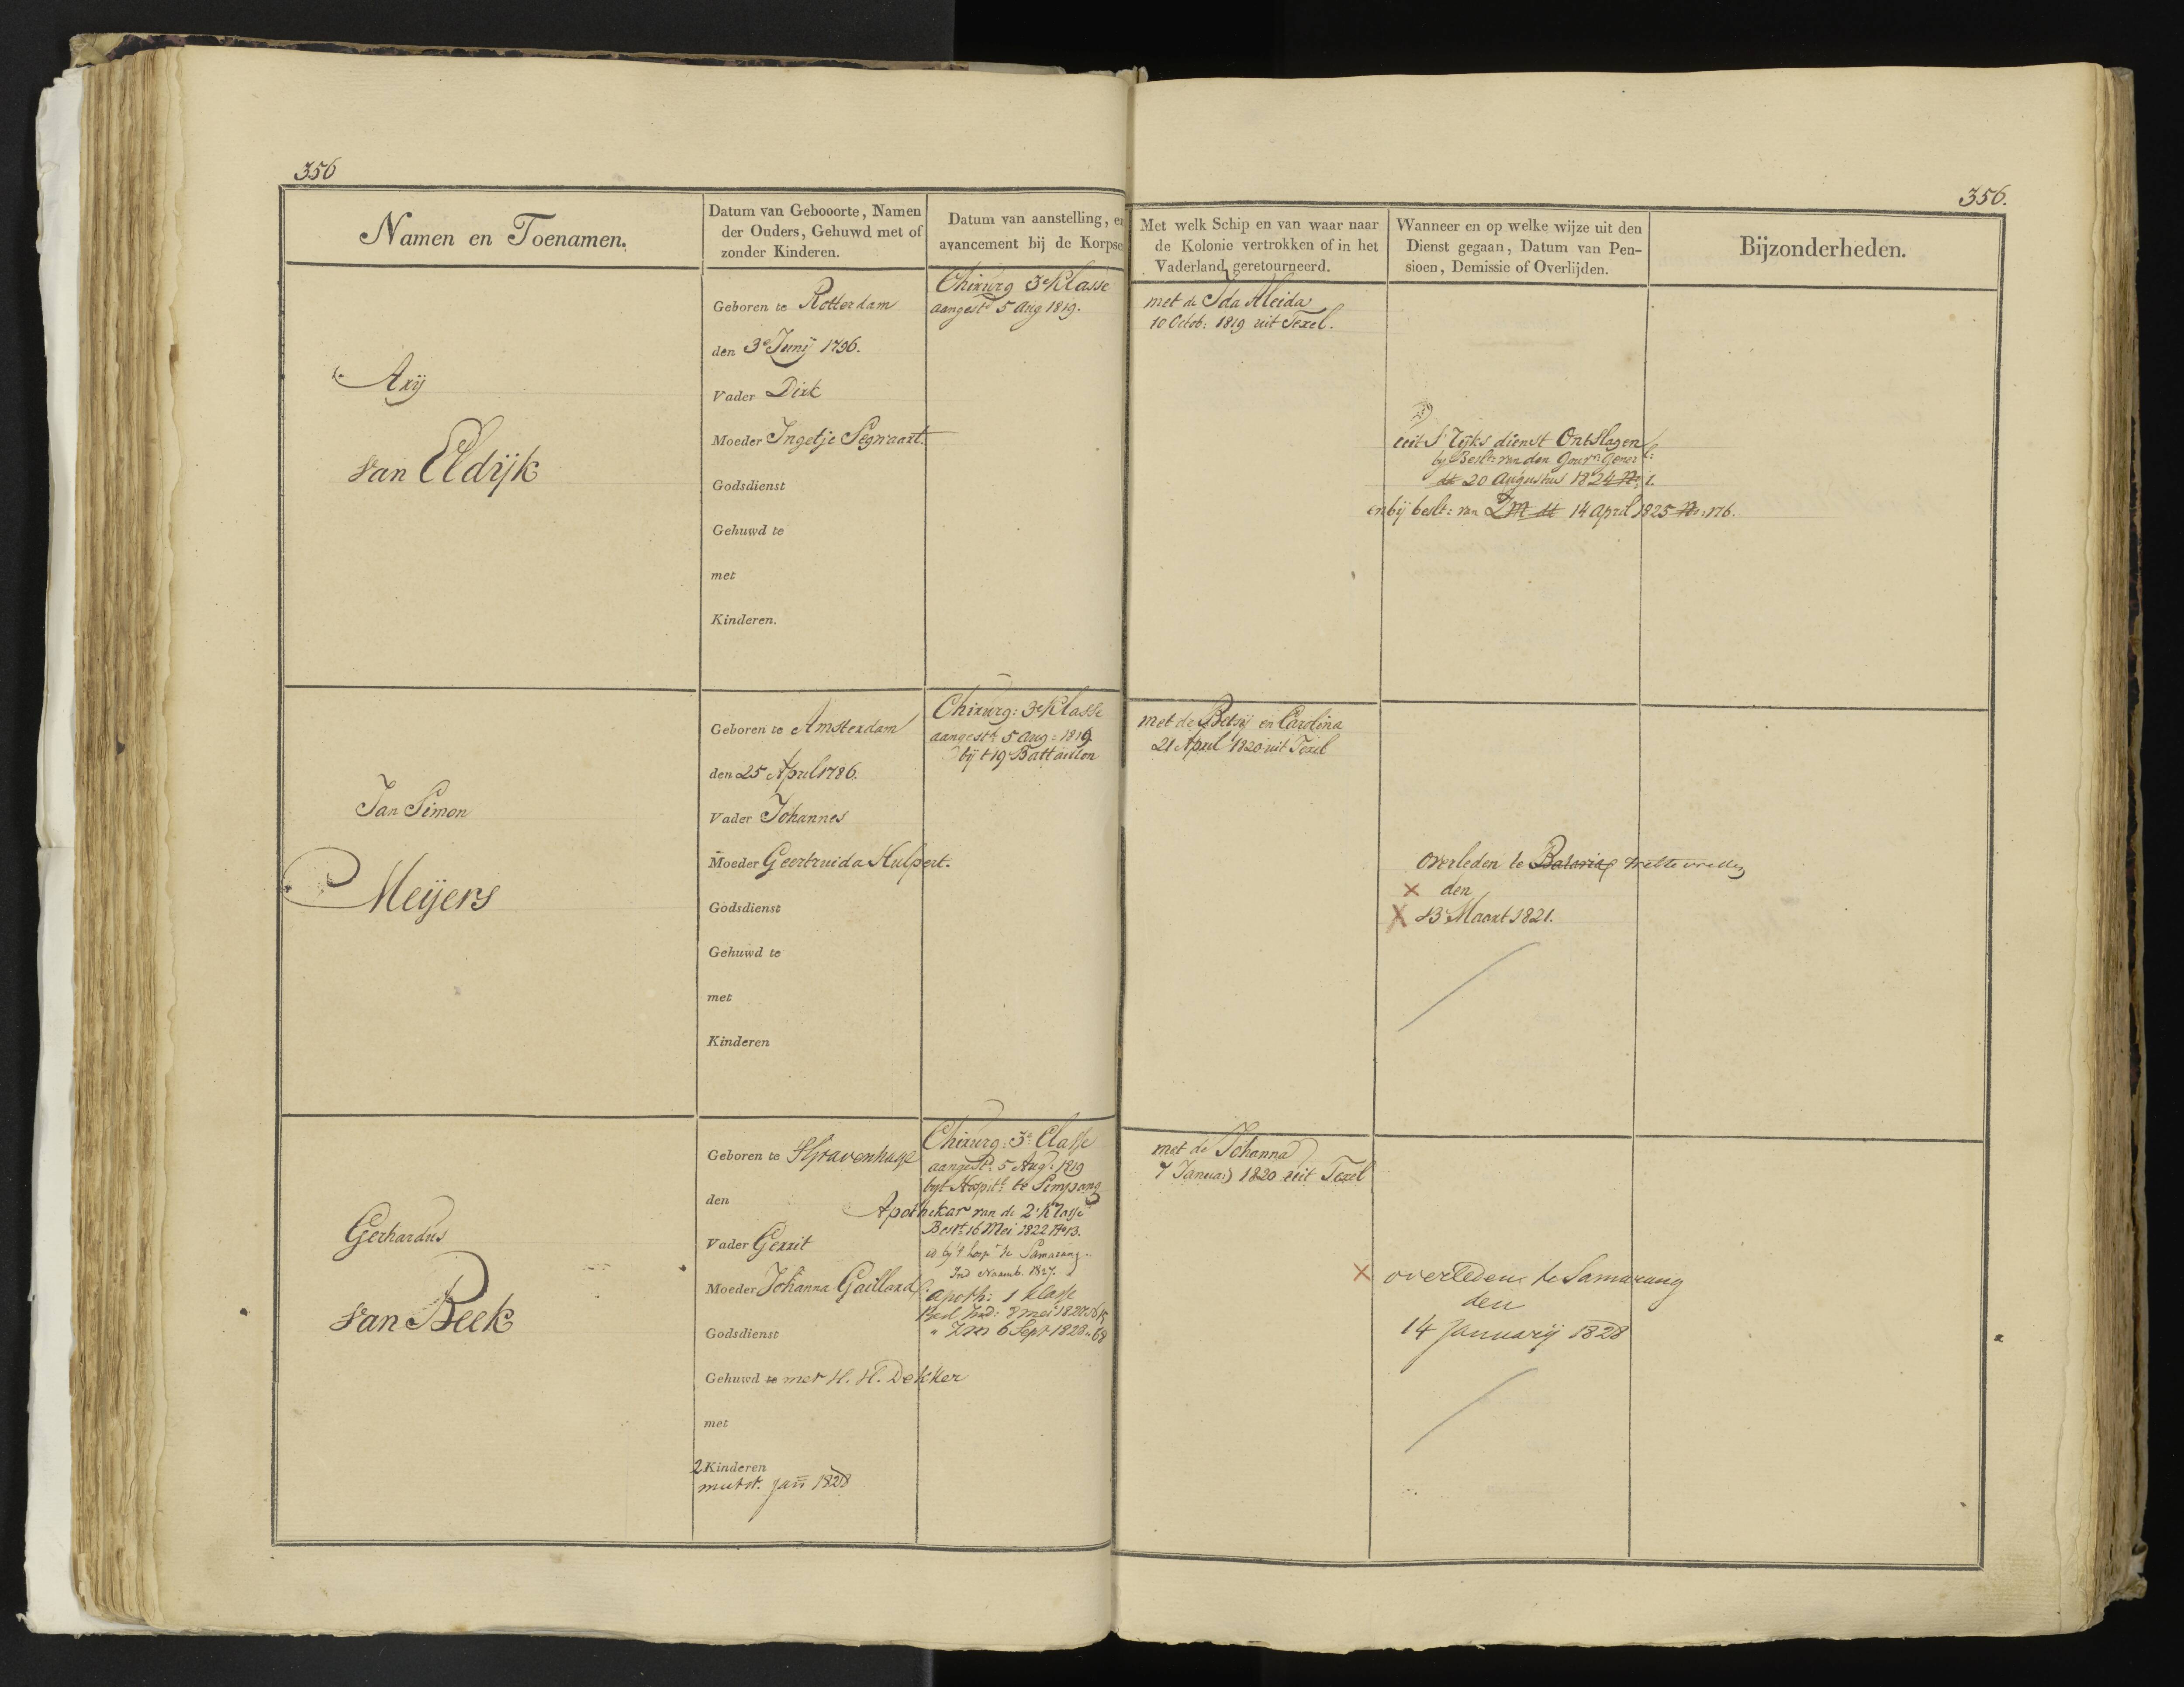 356
356.
Namen en Toenamen.
Datum van Gebooorte, Namen
der Ouders, Gehuwd met of
zonder Kinderen.
Datum van aanstelling, en
avancement bij de Korpse
Met welk Schip en van waar naar
de Kolonie vertrokken of in het
Vaderland geretourneerd.
Wanneer en op welke wijze uit den
Dienst gegaan, Datum van Pen-
sioen, Demissie of Overlijden.
Bijzonderheden.
Arij
van Eldijk
Geboren te Rotterdam
den 3e Junij 1796.
Vader Dirk
Moeder Ingetje Segwaart.
Godsdienst
Gehuwd te
met
Kinderen.
Chirurg 3e Klasse
aangestd 5 Aug 1819.
met de Ida Aleida
10 Octob: 1819 uit Texel.
uit s'rijks dienst Ontslagen
by Beslt: van den Gouvr Gener l:
dt 20 Augustus 1824 No 1.
en bij beslt: van ZM dt 14 April 1825 No: 176.
Jan Simon
Meijers
Geboren te Amsterdam
den 25 April 1786.
Vader Johannes
Moeder Geertruida Hulpert.
Godsdienst
Gehuwd te
met
Kinderen
Chirurg: 3e Klasse
aangestd 5 Aug: 1819
bij t 19 Battaillon
met de Betsij en Carolina
21 April 1820 uit Texel
overleden te Batavia Weltevreden
den
13 Maart 1821.
Gerhardus
van Beek
Geboren te S'Gravenhage
den
Vader Gerrit
Moeder Johanna Gaillard
Godsdienst
Gehuwd te met H. H. Dekker
met
2 Kinderen
mutat. Jan 1828
Chirurg: 3e Classe
aangestd: 5 Aug: 1819
byt Hospitl: te Simpang
Apothekar van de 2e Klasse
Beslt 16 Mei 1822 No 13.
id by 't te Samarang.
Ind Naamb. 1827.
Apoth: 1 Klasse
Besl Ind: 8 mei 1827 No 15
" ZM 6 Sept 1828 " 68
met de Johanna
7 Januar 1820 uit Texel
overleden te Samarang
den
14 Januarij 1828